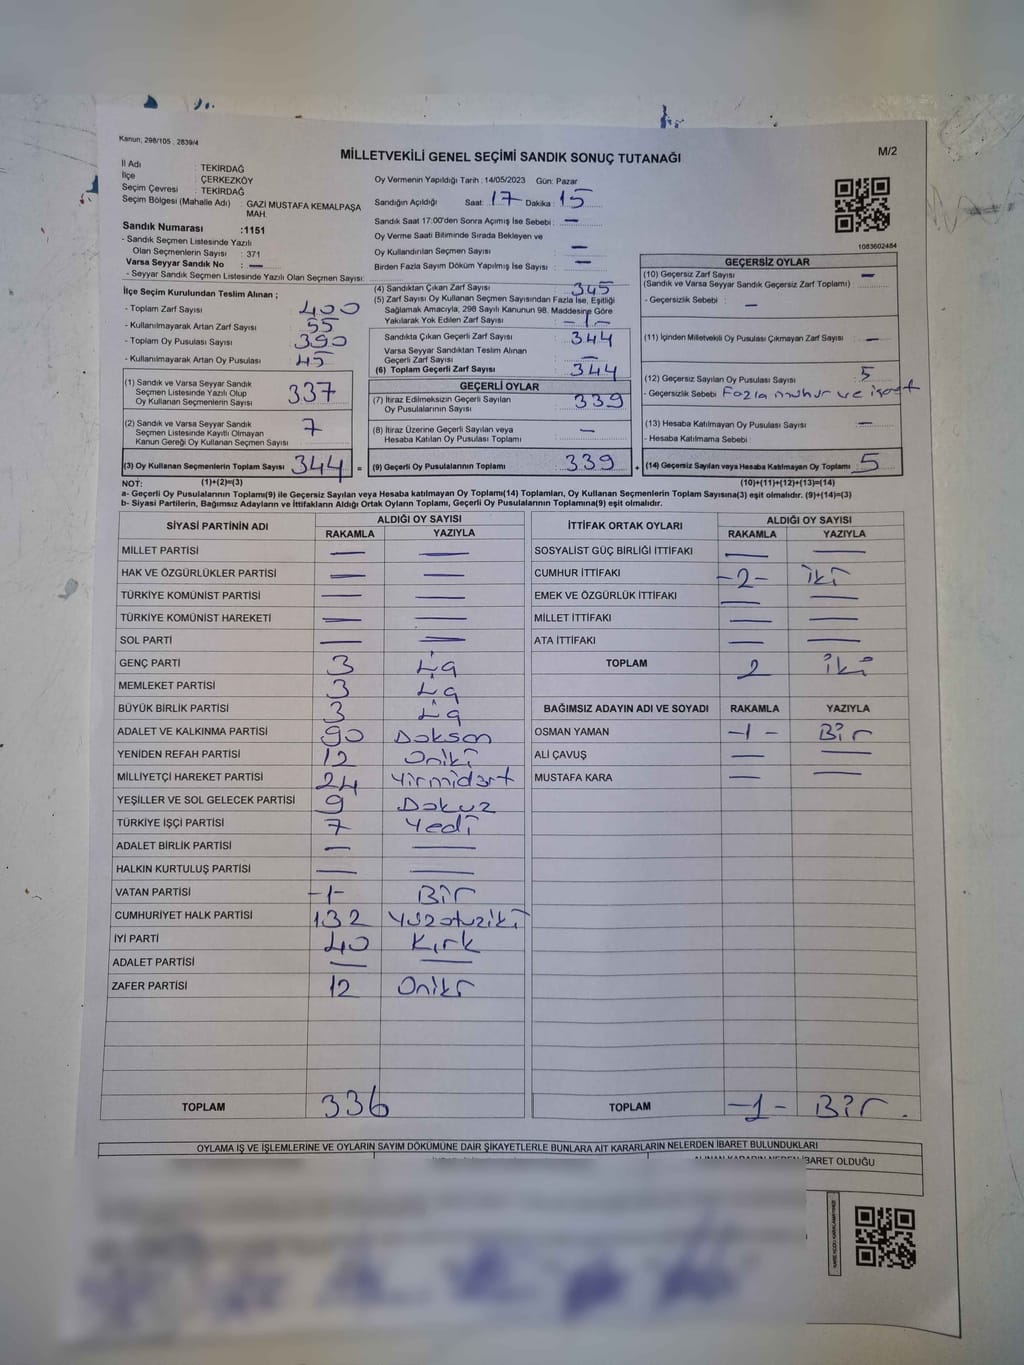 Kanun; 298/105 ; 2839/4
MİLLETVEKİLİ GENEL SEÇİMİ SANDIK SONUÇ TUTANAĞI
M/2
İl Adı : TEKİRDAĞ
İlçe : ÇERKEZKÖY
Seçim Çevresi : TEKİRDAĞ
Seçim Bölgesi (Mahalle Adı) : GAZİ MUSTAFA KEMALPAŞA MAH.
Sandık Numarası :1151
- Sandık Seçmen Listesinde Yazılı
Olan Seçmenlerin Sayısı : 371
Varsa Seyyar Sandık No : —
- Seyyar Sandık Seçmen Listesinde Yazılı Olan Seçmen Sayısı:
Oy Vermenin Yapıldığı Tarih : 14/05/2023 Gün: Pazar
Sandığın Açıldığı Saat: 17 Dakika : 15
Sandık Saat 17:00'den Sonra Açımış İse Sebebi : —
Oy Verme Saati Bitiminde Sırada Bekleyen ve
Oy Kullandırılan Seçmen Sayısı —
Birden Fazla Sayım Döküm Yapılmış İse Sayısı : —
1083602484
İlçe Seçim Kurulundan Teslim Alınan ;
- Toplam Zarf Sayısı : 400
- Kullanılmayarak Artan Zarf Sayısı : 55
- Toplam Oy Pusulası Sayısı : 390
- Kullanılmayarak Artan Oy Pusulası : 45
(1) Sandık ve Varsa Seyyar Sandık
Seçmen Listesinde Yazılı Olup
Oy Kullanan Seçmenlerin Sayısı : 337
(2) Sandık ve Varsa Seyyar Sandık
Seçmen Listesinde Kayıtlı Olmayan
Kanun Gereği Oy Kullanan Seçmen Sayısı : 7
(3) Oy Kullanan Seçmenlerin Toplam Sayısı : 344 =
(4) Sandıktan Çıkan Zarf Sayısı : 345
(5) Zarf Sayısı Oy Kullanan Seçmen Sayısından Fazla İse, Eşitliği
Sağlamak Amacıyla, 298 Sayılı Kanunun 98. Maddesine Göre
Yakılarak Yok Edilen Zarf Sayısı : -1-
Sandıkta Çıkan Geçerli Zarf Sayısı : 344
Varsa Seyyar Sandıktan Teslim Alınan
Geçerli Zarf Sayısı : —
(6) Toplam Geçerli Zarf Sayısı : 344
GEÇERLİ OYLAR
(7) İtiraz Edilmeksizin Geçerli Sayılan
Oy Pusulalarının Sayısı : 339
(8) İtiraz Üzerine Geçerli Sayılan veya
Hesaba Katılan Oy Pusulası Toplamı : —
(9) Geçerli Oy Pusulalarının Toplamı : 339 +
GEÇERSİZ OYLAR
(10) Geçersiz Zarf Sayısı —
(Sandık ve Varsa Seyyar Sandık Geçersiz Zarf Toplamı) :
- Geçersizlik Sebebi : —
(11) İçinden Milletvekili Oy Pusulası Çıkmayan Zarf Sayısı : —
(12) Geçersiz Sayılan Oy Pusulası Sayısı : 5
- Geçersizlik Sebebi : Fazla mühür ve işaret
(13) Hesaba Katılmayan Oy Pusulası Sayısı : —
- Hesaba Katılmama Sebebi :
(14) Geçersiz Sayılan veya Hesaba Katılmayan Oy Toplamı : 5
NOT: (1)+(2)=(3) (10)+(11)+(12)+(13)=(14)
a- Geçerli Oy Pusulalarının Toplamı(9) ile Geçersiz Sayılan veya Hesaba katılmayan Oy Toplamı(14) Toplamları, Oy Kullanan Seçmenlerin Toplam Sayısına(3) eşit olmalıdır. (9)+(14)=(3)
b- Siyasi Partilerin, Bağımsız Adayların ve İttifakların Aldığı Ortak Oyların Toplamı, Geçerli Oy Pusulalarının Toplamına(9) eşit olmalıdır.
SİYASİ PARTİNİN ADI ALDIĞI OY SAYISI
RAKAMLA YAZIYLA
MİLLET PARTİSİ — —
HAK VE ÖZGÜRLÜKLER PARTİSİ — —
TÜRKİYE KOMÜNİST PARTİSİ — —
TÜRKİYE KOMÜNİST HAREKETİ — —
SOL PARTİ — —
GENÇ PARTİ 3 üç
MEMLEKET PARTİSİ 3 üç
BÜYÜK BİRLİK PARTİSİ 3 üç
ADALET VE KALKINMA PARTİSİ 90 Doksan
YENİDEN REFAH PARTİSİ 12 Oniki
MİLLİYETÇİ HAREKET PARTİSİ 24 Yirmidört
YEŞİLLER VE SOL GELECEK PARTİSİ 9 Dokuz
TÜRKİYE İŞÇİ PARTİSİ 7 Yedi
ADALET BİRLİK PARTİSİ — —
HALKIN KURTULUŞ PARTİSİ — —
VATAN PARTİSİ -1- Bir
CUMHURİYET HALK PARTİSİ 132 Yüzotuziki
İYİ PARTİ 40 Kırk
ADALET PARTİSİ — —
ZAFER PARTİSİ 12 Oniki
TOPLAM 336
İTTİFAK ORTAK OYLARI ALDIĞI OY SAYISI
RAKAMLA YAZIYLA
SOSYALİST GÜÇ BİRLİĞİ İTTİFAKI — —
CUMHUR İTTİFAKI -2- iki
EMEK VE ÖZGÜRLÜK İTTİFAKI — —
MİLLET İTTİFAKI — —
ATA İTTİFAKI — —
TOPLAM 2 iki
BAĞIMSIZ ADAYIN ADI VE SOYADI RAKAMLA YAZIYLA
OSMAN YAMAN -1- Bir
ALİ ÇAVUŞ — —
MUSTAFA KARA — —
TOPLAM -1- Bir.
OYLAMA İŞ VE İŞLEMLERİNE VE OYLARIN SAYIM DÖKÜMÜNE DAİR ŞİKAYETLERLE BUNLARA AİT KARARLARIN NELERDEN İBARET BULUNDUKLARI
İBARET OLDUĞU